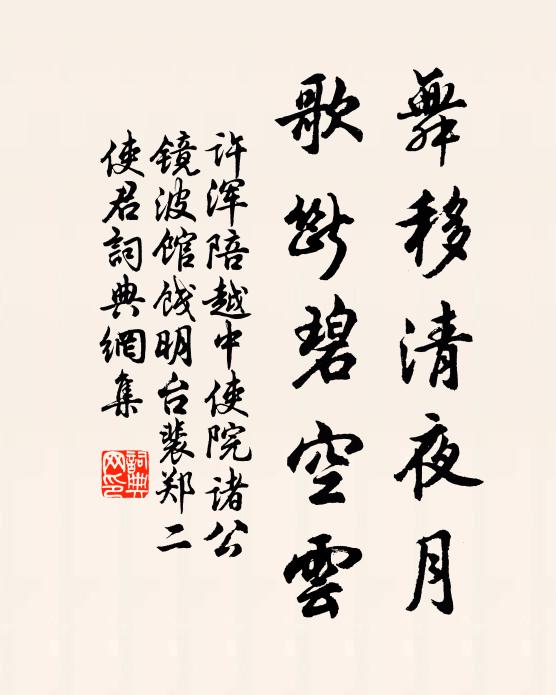 舞移清夜月
歌斷碧空雲
许浑陪越中使院诸公
镜波馆饯明台裴郑二
使君詞典網集
詞典网印